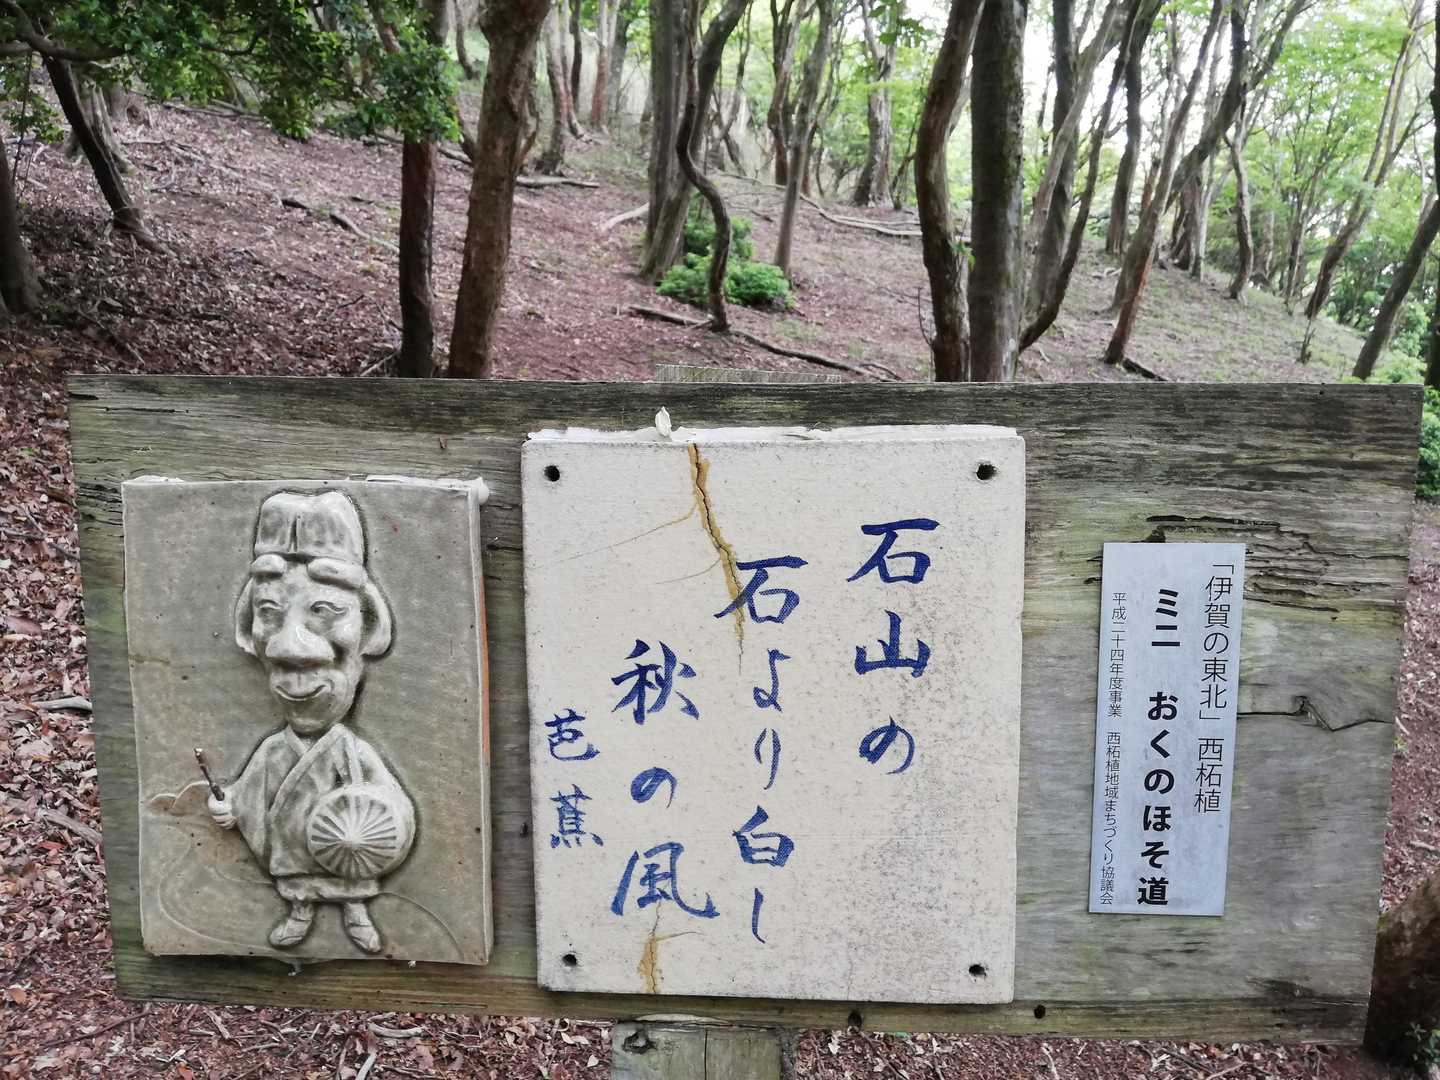 「伊賀の東北」西柘植
ミニ おくのほそ道
平成二十四年度事業 西柘植地域まちづくり協議会
石山の
石より白し
秋の風
芭蕉